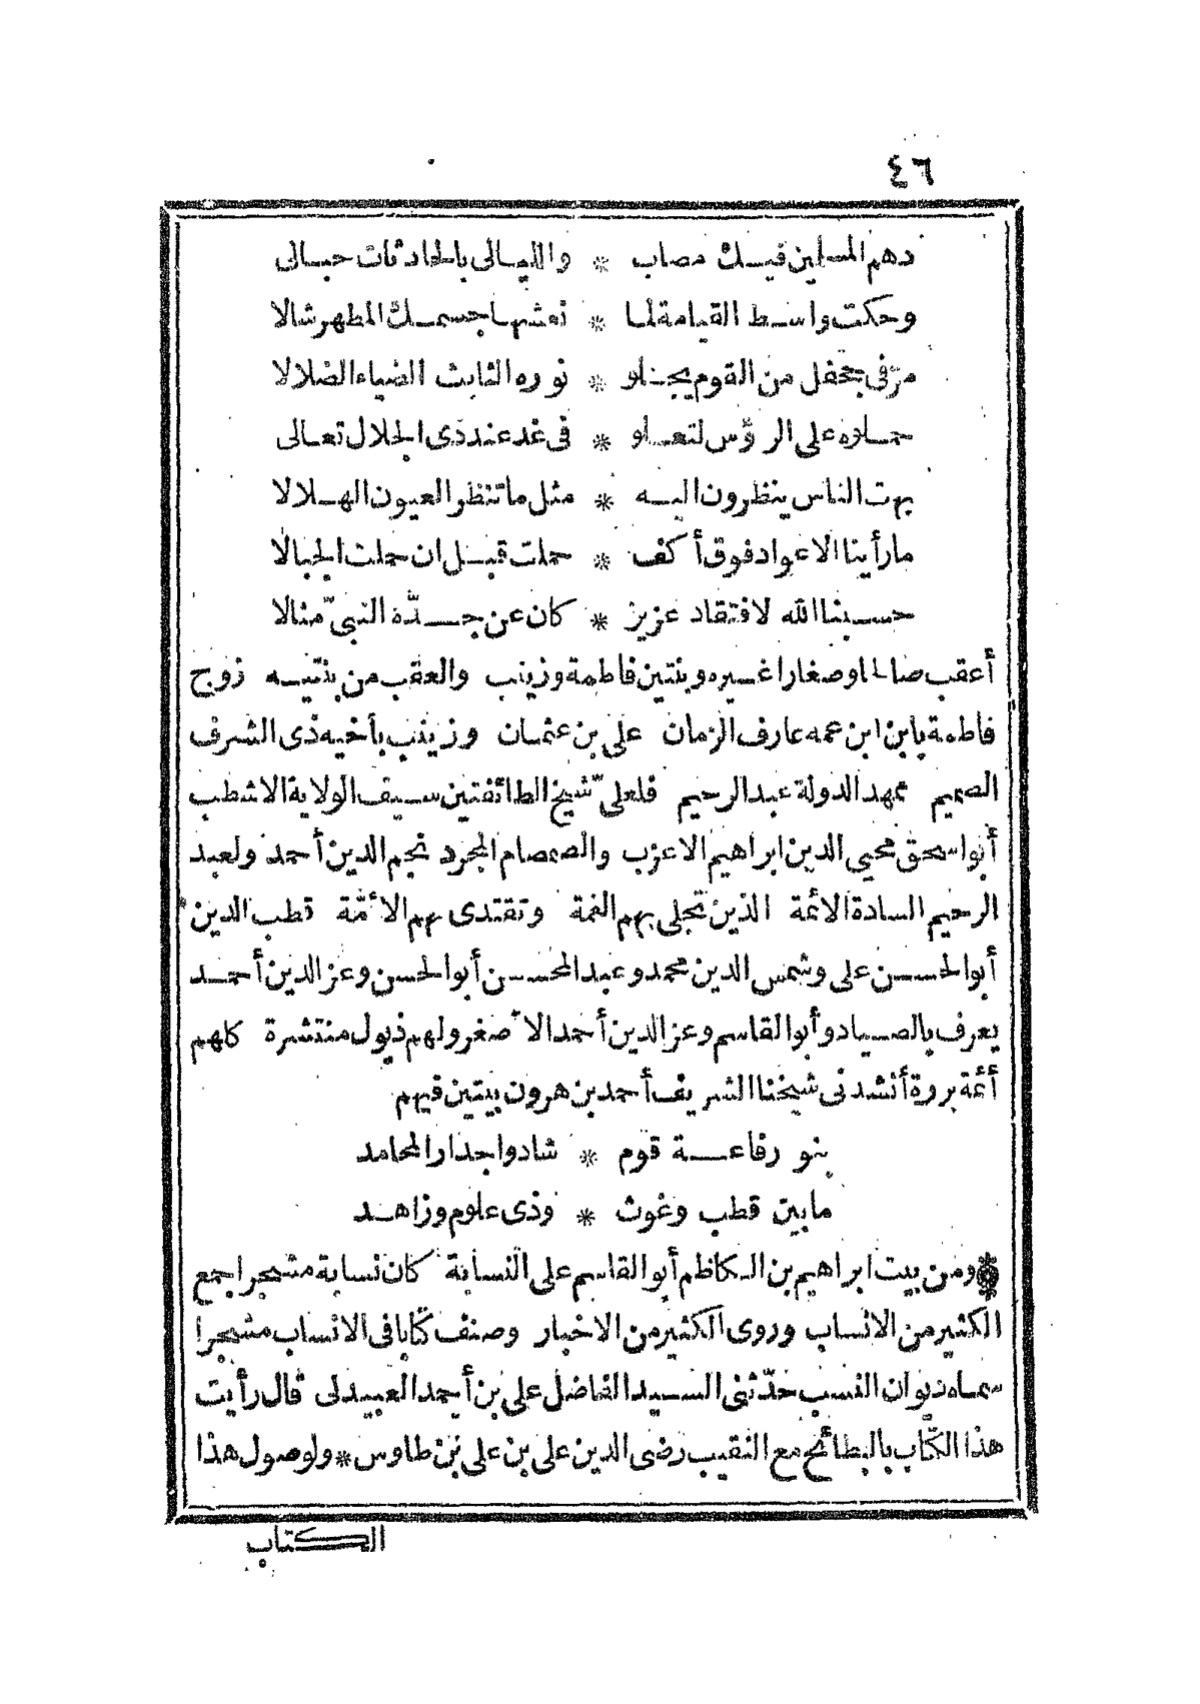 ٤٦
دهم المسلمين فيك مصاب * والليالى بالحادثات حبالى
وحكت واسط القيامة لما * نعشها جسمك المطهر شالا
مرّ فى جحفل من القوم يجلو * نوره الثابث الضياء الضلالا
حملوه على الرؤس لتعلو * فى غد عند ذى الجلال تعالى
بهت الناس ينظرون اليه * مثل ما تنظر العيون الهلالا
ما رأينا الاعواد فوق أكف * حملت قبل ان حملت الجبالا
حسبنا الله لافتقاد عزيز * كان عن جدّه النبىّ مثالا
أعقب صالحا وصغارا غيره وبنتين فاطمة وزينب والعقب من بنتيه زوج
فاطمة بابن ابن عمه عارف الزمان على بن عثمان وزينب بأخيه ذى الشرف
الصميم ممهد الدولة عبد الرحيم فلعلىّ شيخ الطائفتين سيف الولاية الاشطب
أبو اسحق محيى الدين ابراهيم الاعزب والصمصام المجرد نجم الدين أحمد ولعبد
الرحيم السادة الائمة الذين تجلى بهم الغمة وتقتدى بهم الأمّة قطب الدين
أبو الحسن على وشمس الدين محمد وعبد المحسن أبو الحسن وعز الدين أحمد
يعرف بالصياد وأبو القاسم وعز الدين أحمد الاصغر ولهم ذيول منتشرة كلهم
أئمة بررة أنشدنى شيخنا الشريف أحمد بن هرون بيتين فيهم
بنو رفاعة قوم * شادوا جدار المحامد
ما بين قطب وغوث * وذى علوم وزاهد
* ومن بيت ابراهيم بن الكاظم أبو القاسم على النسابة كان نسابة مشجرا جمع
الكثير من الانساب وروى الكثير من الاخبار وصنف كتابا فى الانساب مشجرا
سماه ديوان النسب حدّثنى السيد الفاضل على بن أحمد العبيدلى قال رأيت
هذا الكتاب بالبطائح مع النقيب رضى الدين على بن على بن طاوس * ولوصول هذا
الكتاب